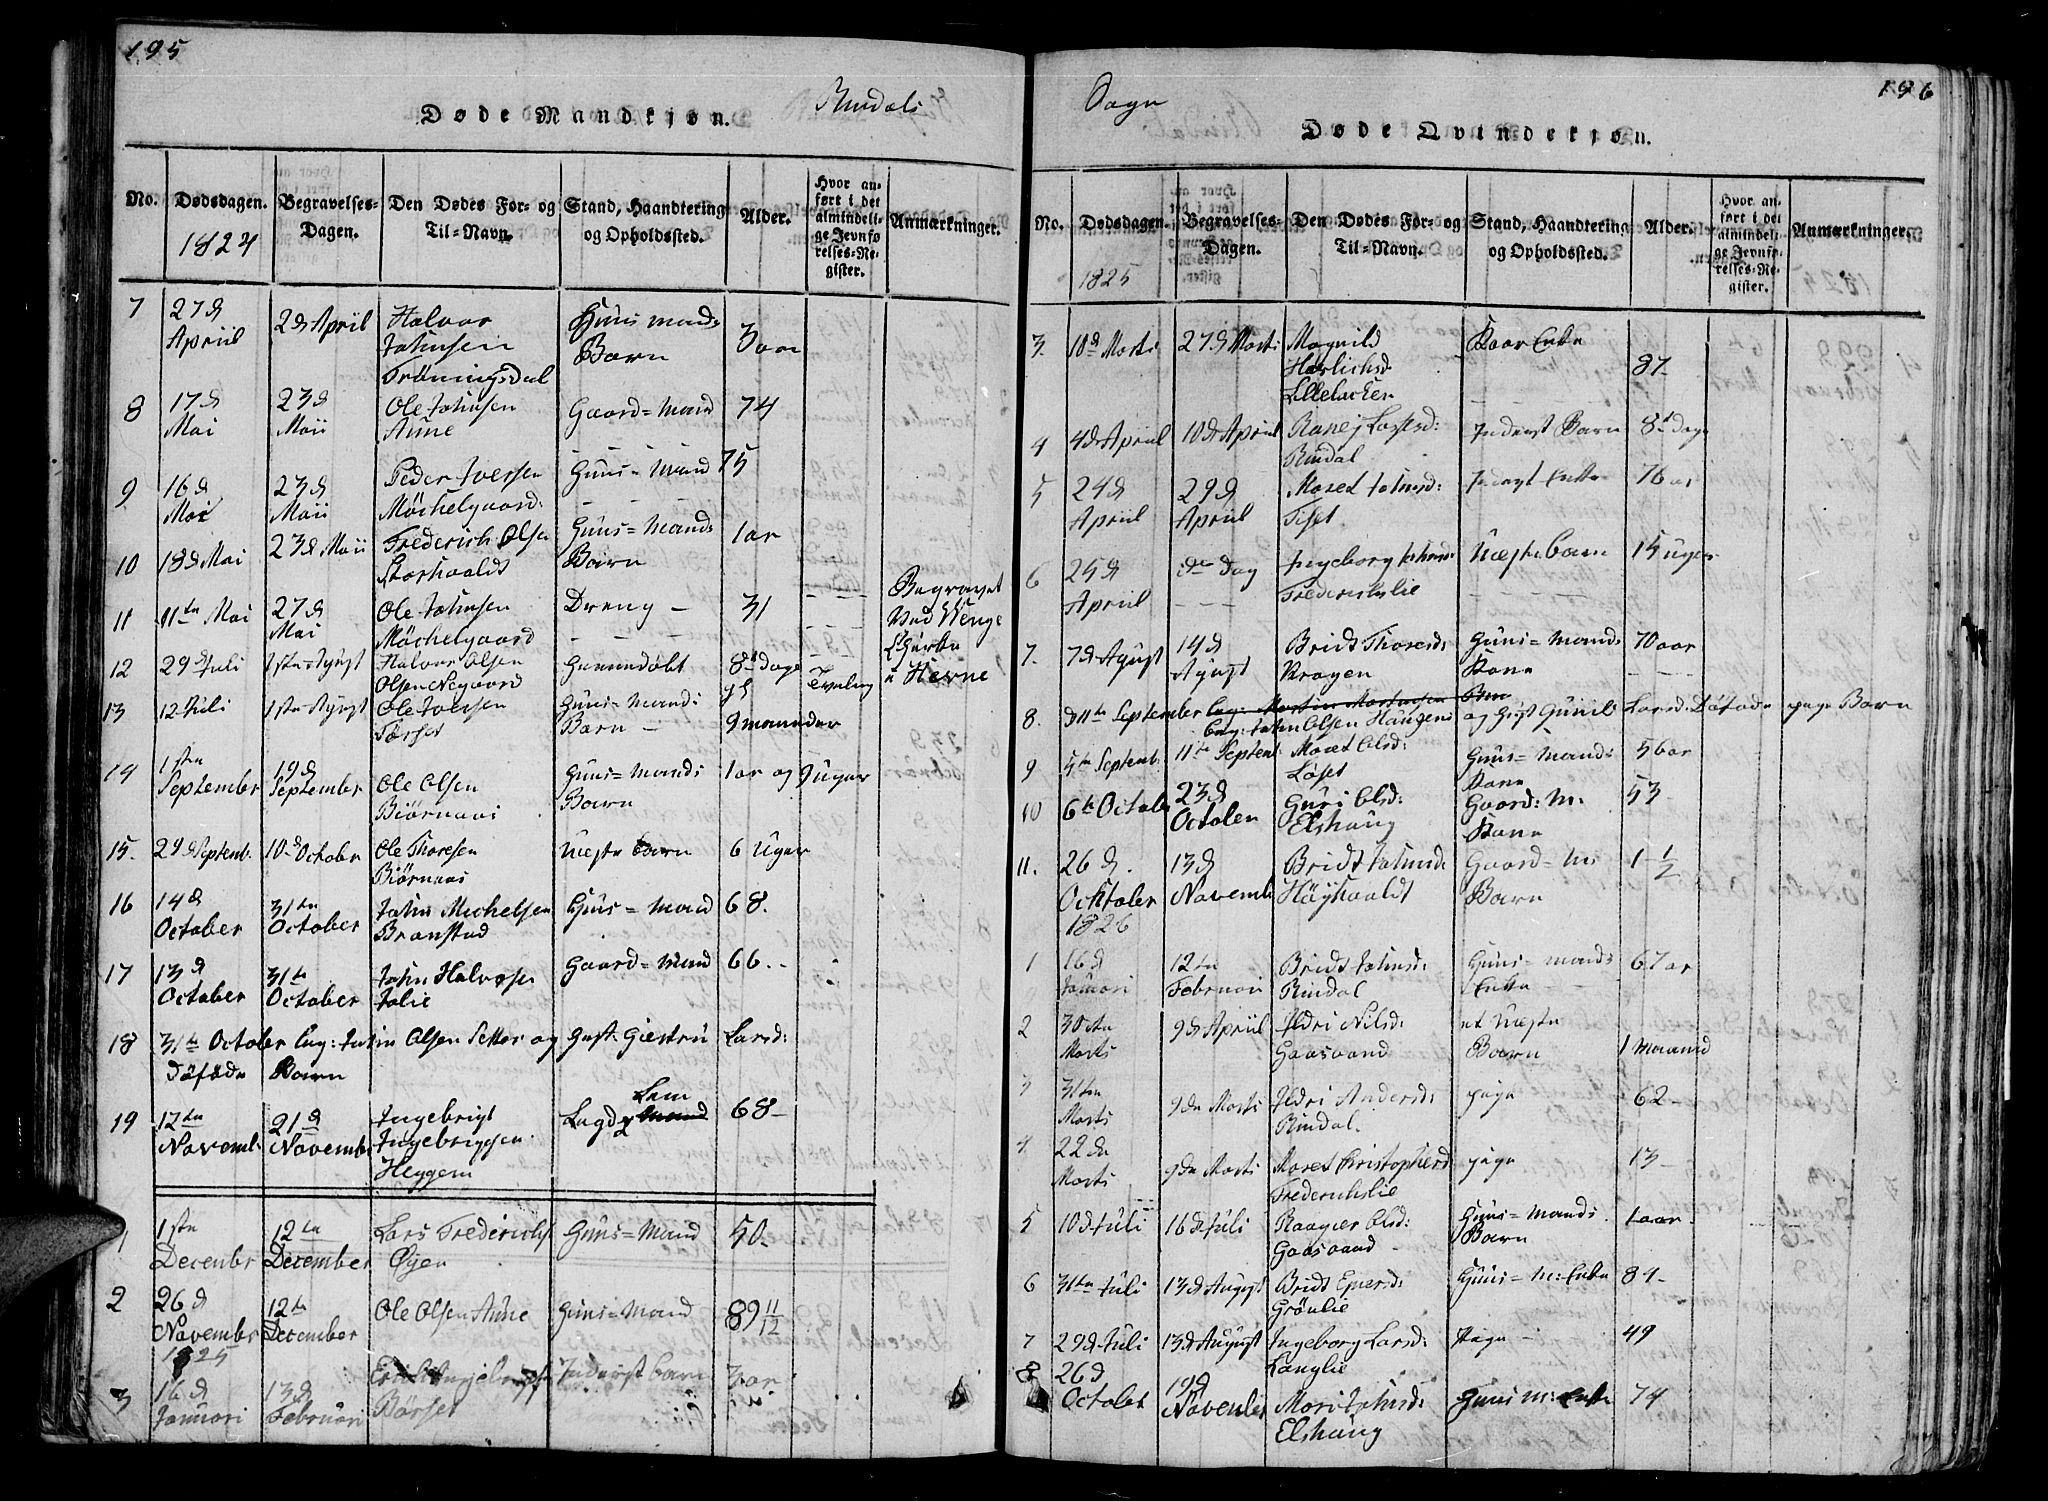 195
Døde Mandkjøn.
Rindals
No.
Dødsdagen.
1824
Begravelses-
Dagen.
Den Dødes For- og
Til-Navn.
Stand, Haandtering
og Opholdssted.
Alder.
Hvor an-
ført i det
almindeli-
ge Jevnfø
relses-Re-
gister.
Anmærkninger.
7 27d Apriil 2d Apriil Halvor Johnsen Trönningsdal Huusmands Barn 3 aar
8 17d Mai 23d Maii Ole Johnsen Aune Gaard=Mand 74
9 16d Mai 23d Maii Peder Iversen Möchelgaard Huus=Mand 75
10 18d Mai 23d Maii Frederich Olsen Storhaaldt Huus=Mands Barn 1 ar
11 11te Mai 27d Mai Ole Johnsen Möchelgaard Dreng 31 Begravet Ved Venge Kjerke i Hevne
12 29d Juli 1ste Augst Halvor Olsen Olsen Negaard 8d dage Tvilling
13 12 Juli 1ste Augst Ole Iversen Torset Huus=Mands Barn 9 maaneder
14 1ste September 19d September Ole Olsen Biörnaas Huus=Mands Barn 1 ar og 9 uger
15. 29d Septemb. 10d October Ole Thoresen Biörnaas Uegte Barn 6 Uger
16 14d October 31te October John Michelsen Brænstad Huus=Mand 68.
17 13d October 31te October John Halvorsen Jolie Gaard=Mand 66.
18 31te October Eug: John Olsen Setter og Gust: Giestru Larsd: Döfödu Barn
19 12te November 21d November Ingebrigt Ingebrigtsen Heggem Lægd Lem 68
1 1ste December 12te December Lars Frederichs. Öyen Huus=Mand 50.
2 26d November 12te December Ole Olsen Aune Huus=Mand 89 11/12
1825
3 16d Januari 13d Februari Börset Inderst barn 3 ar
Sogn
196
Døde Qvindekjøn.
No.
Dødsdagen.
1825
Begravelses-
Dagen.
Den Dødes For- og
Til-Navn.
Stand, Haandtering
og Opholdssted.
Alder.
Hvor an-
ført i det
almindeli-
ge Jevnfø-
relses-Re-
gister.
Anmærkninger.
3. 18d Marti 27d Marti Magnild Lilleløcken Kaar Enke 87
4 4d Apriil 10d Apriil Ranej Rindal Inderst Barn 8d dage
5 24d Apriil 29d Apriil Maret Johnsd: Tiset Enke 76 ar
6 25d Apriil do Dag Ingeborg Johnsd: Frederichslie Uegte Barn 15 uger
7. 7d Augst 14d Augst Bridt Thoresd: Kragen Huus=Mands Kone 70 aar
8. d 11te September Eug: John Olsen Haugens og Gust Gunil Larsd: Döfödu pige Barn
9 4te Septemb. 11te Septemb. Maret Olsd: Löset Huus=Mands Kone 56 ar
10 6te October 23d October Guri Olsd: Elshaug Gaard: M: Kone 53
11. 26d. October 13d Novemb. Bridt Johnsd: Höghaaldt Gaard=M: Barn 1 1/2
1826
1 16d Januari 12te Februari Bridt Johnsd: Rindal Huus=mands Enke 67 ar
2 30te Marts 9d Apriil Ildri Nilsd: Gaasvand et Uegte Barn 1 maaned
3 31te Marts 9de Marti Ildri Andersd: Rindal. pige 62
4 22de Marts 9de Marti Maret Christophersd Frederichslie pige 13
5 10d Juli 16d Juli Raagner Olsd: Gaasvand Huus=Mands Barn 1 aar.
6 31te Juli 13d Augst Bridt Enersd: Grönlie Huus=M: Enke 84
7 29d Juli 13d August Ingeborg Larsd: Langlie Pige 49
8 26d October 19d November Mari Johnsd: Elshaug Huus M: Enke 74